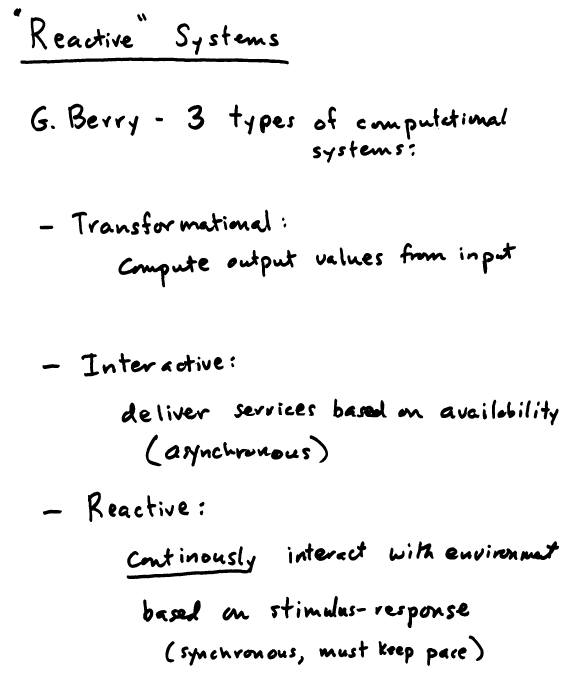 "Reactive" Systems
G. Berry - 3 types of computational
systems:
- Transformational:
compute output values from input
- Interactive:
deliver services based on availability
(asynchronous)
- Reactive:
continously interact with environmat
based on stimulus-response
(synchronous, must keep pace)